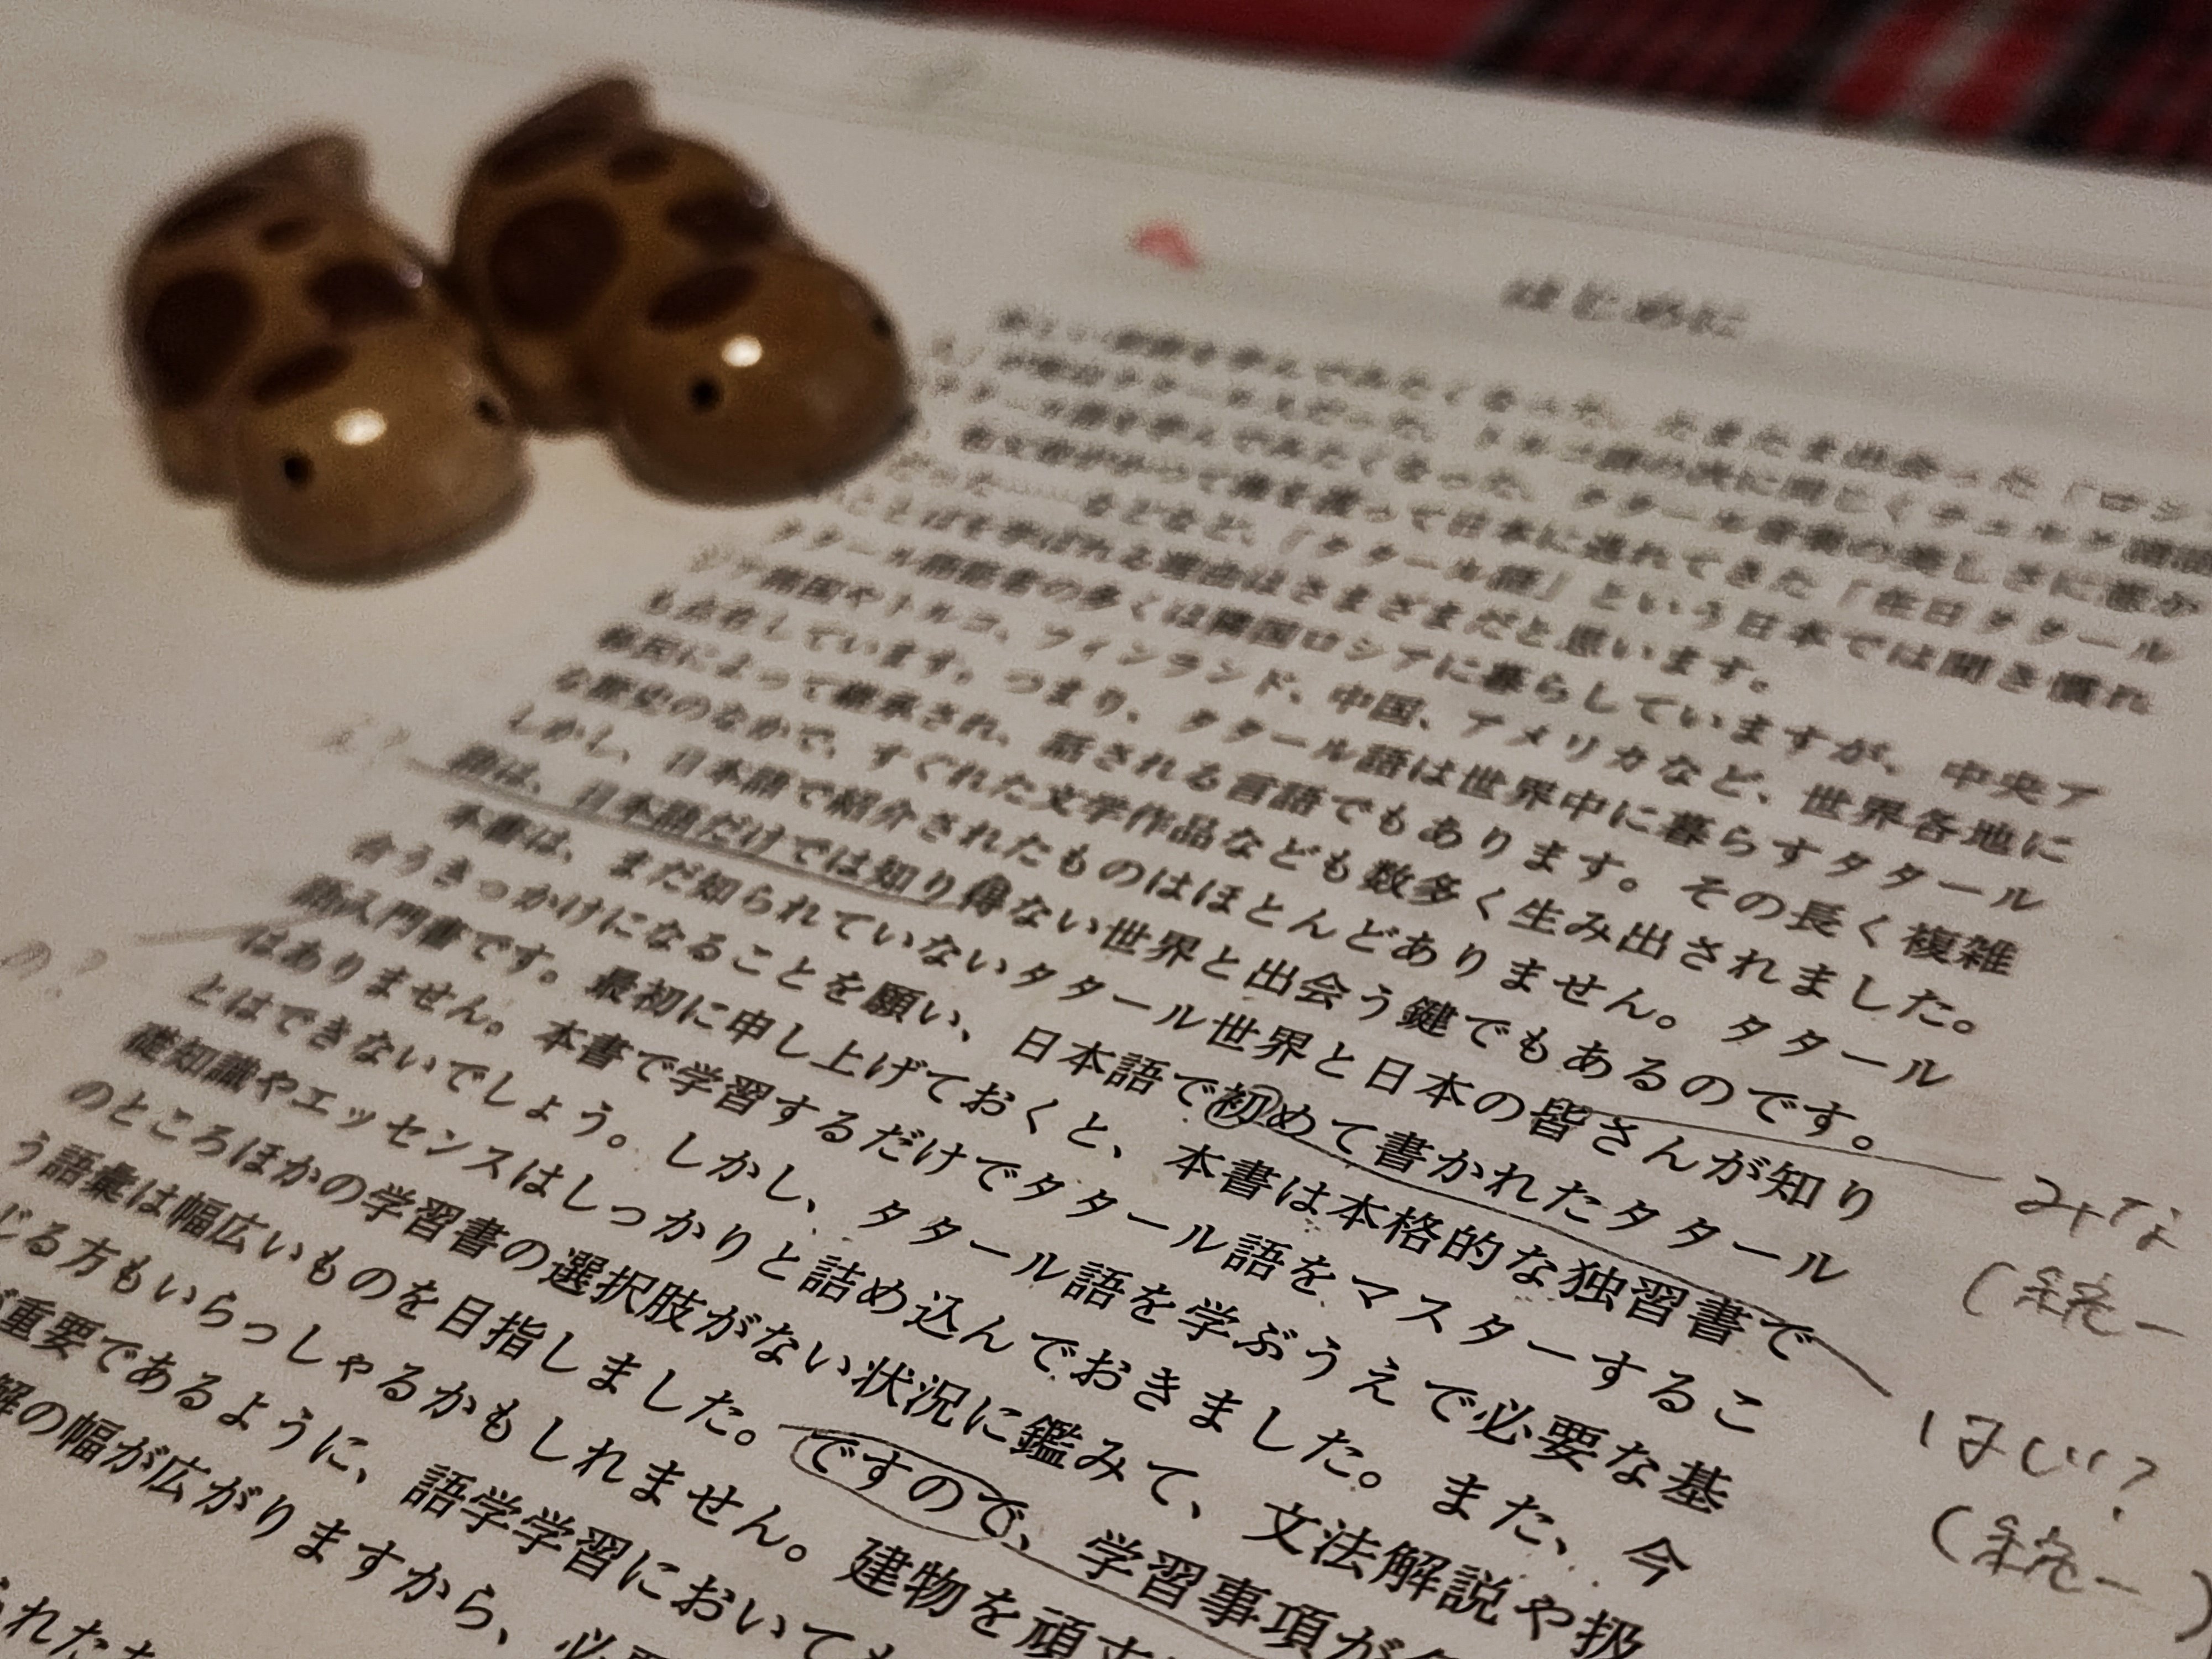 はじめに
学んでみたくなった、たまたま出会った「ロシ
タタール人だった、トルコ語の次に同じくチュルク諸語
タタール語を学んでみたくなった、タタール音楽の美しさに惹か
がかつて海を渡って日本に逃れてきた「在日タタール
だった……などなど、「タタール語」という日本では聞き慣れ
ことばを学ばれる理由はさまざまだと思います。
タタール語話者の多くは隣国ロシアに暮らしていますが、中央ア
ジア諸国やトルコ、フィンランド、中国、アメリカなど、世界各地に
も点在しています。つまり、タタール語は世界中に暮らすタタール
移民によって継承され、話される言語でもあります。その長く複雑
な歴史のなかで、すぐれた文学作品なども数多く生み出されました。
しかし、日本語で紹介されたものはほとんどありません。タタール
語は、日本語だけでは知り得ない世界と出会う鍵でもあるのです。
本書は、まだ知られていないタタール世界と日本の皆さんが知り
合うきっかけになることを願い、日本語で初めて書かれたタタール
語入門書です。最初に申し上げておくと、本書は本格的な独習書で
はありません。本書で学習するだけでタタール語をマスターするこ
とはできないでしょう。しかし、タタール語を学ぶうえで必要な基
礎知識やエッセンスはしっかりと詰め込んでおきました。また、今
のところほかの学習書の選択肢がない状況に鑑みて、文法解説や扱
う語彙は幅広いものを目指しました。ですので、学習事項が
じる方もいらっしゃるかもしれません。建物を頑
重要であるように、語学学習においても
解の幅が広がりますから、必要
られた
え?
の?
みな
(統一
はじ?
(統一)